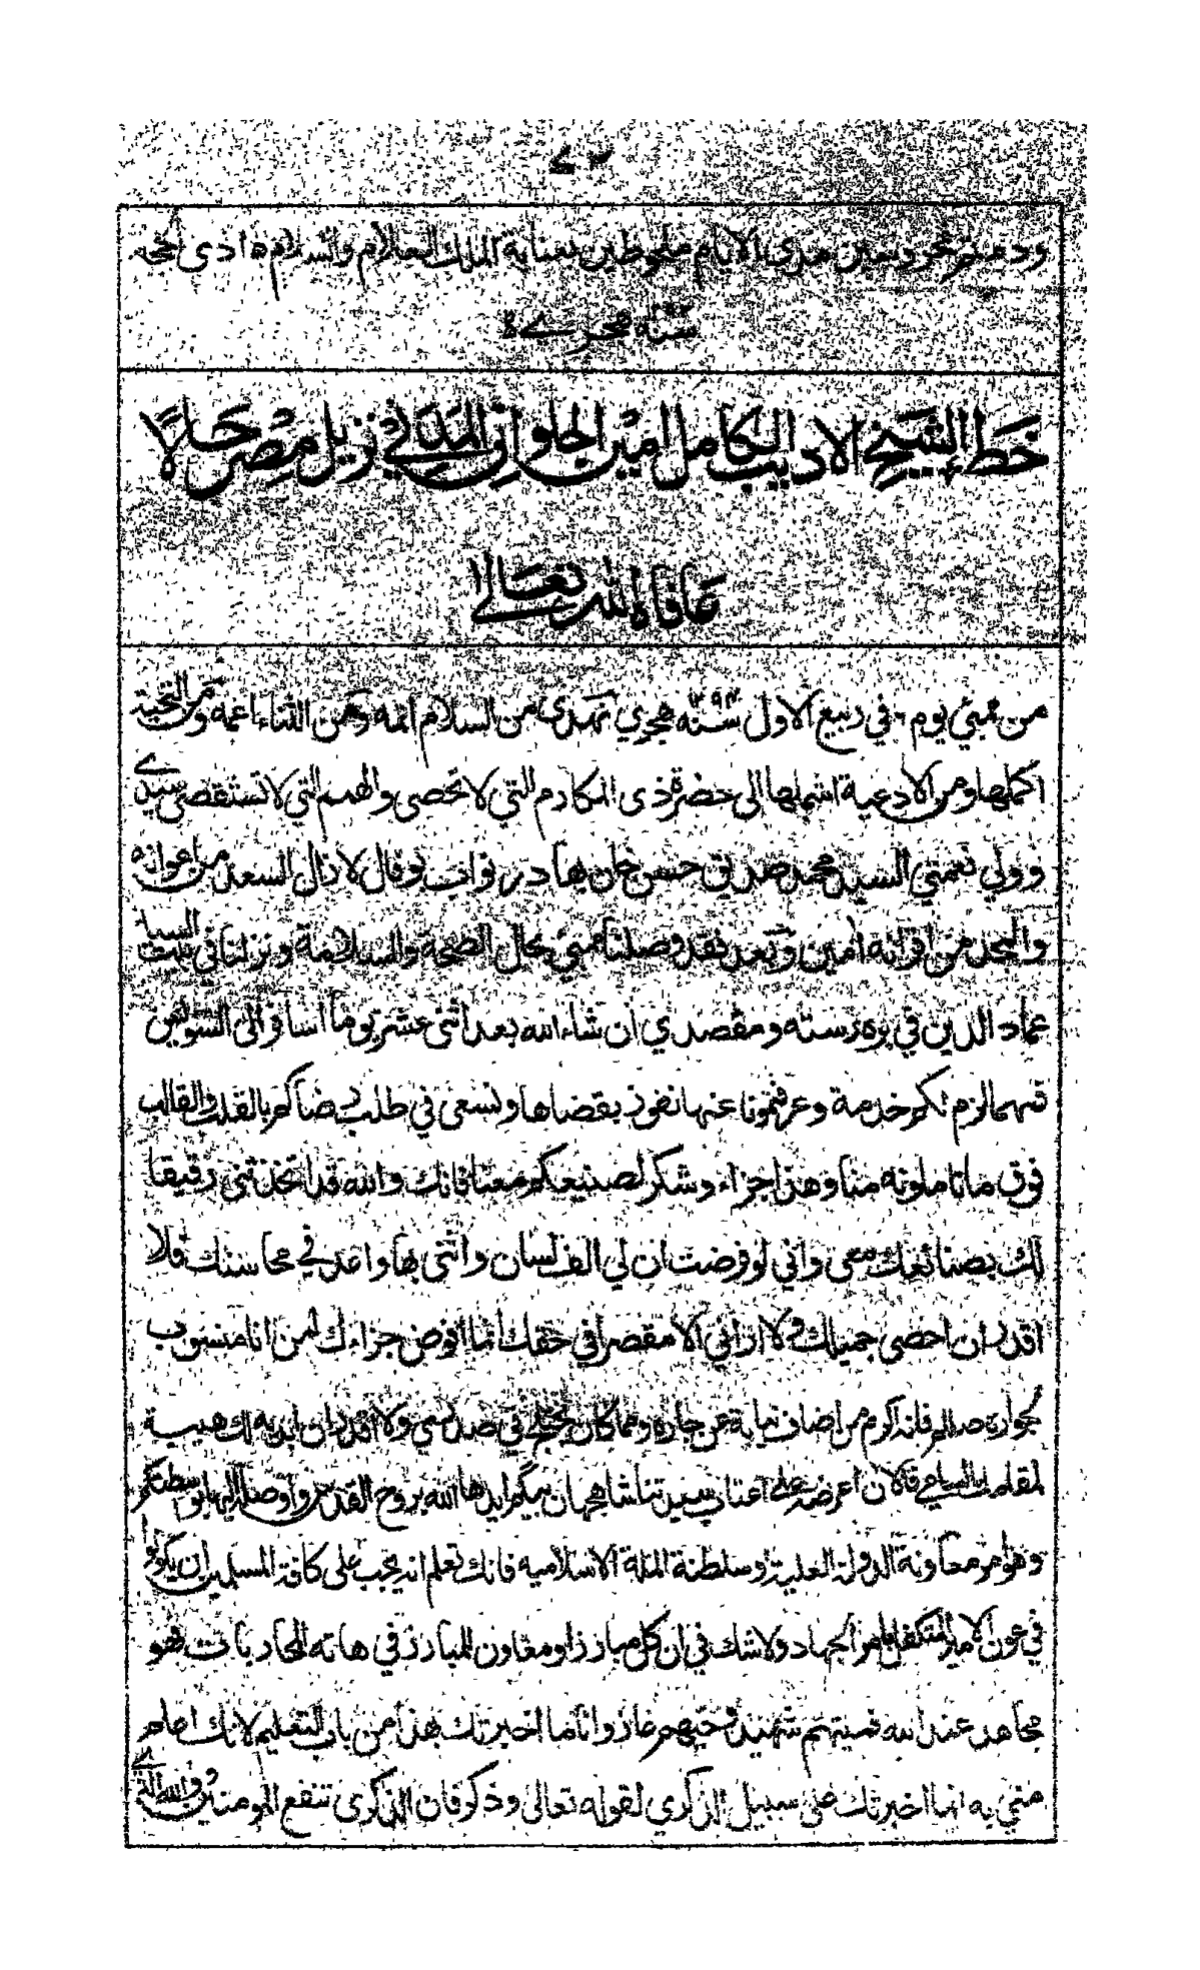 ٧٢
ودمتم محروسين مدى الايام ملحوظين بعناية الملك العلام والسلام ذى الحجه
سنه هجرية
خط الشيخ الاديب الكامل امين الحلواني المدني نزيل مصر حالا
عافاه الله تعالى
من ممبئي يوم في ربيع الاول سنه ١٢٩٤ هجري نهدى من السلام اتمه ومن الثناء اعمه ومن التحية
اكملها ومن الادعية اشملها الى حضرة ذى المكارم التي لا تحصى والهمم التي لا تستقصى سيدي
وولي نعمتي السيد محمد صديق حسن خان بهادر نواب بوفال لا زال السعد من اعوانه
والمجد من اقرانه امين وبعد فقد وصلنا ممبئي بحال الصحة والسلامة ونزلنا في بيت السيد
عماد الدين في ومقصدي ان شاء الله بعد اثنى عشر يوما اسافر الى السويس
فمهما لزم لكم خدمة وعرفتمونا عنها نفوز بقضاها ونسعى في طلب رضاكم بالقلب والقالب
فوق ما تاملونه منا وهذا جزاء وشكر لصنيعكم معنا فانك والله قد اتخذتنى رقيقا
لك بصنائعك معى واني لو فرضت ان لي الف لسان واثنى بها واعد في محاسنك فلا
اقدر ان احصى جميلك ولا اراني الا مقصرا في حقك انما افوض جزاءك لمن انا منسوب
لجواره صللم فانه اكرم من اضاف نيابة عن جاره ومما كان في صدري ولا اقدر ان ابديه لك هيبة
لمقامك السامي فالان اعرضه على اعتاب سيدتنا شاهجهان بيگم ايدها الله بروح القدس واوصله اليها بواسطتكم
وهو امر معاونة الدولة العلية وسلطنة الملة الاسلاميه فانك تعلم انه يجب على كافة المسلمين ان يكونوا
في عون الامير المتكفل بامر الجهاد ولا شك في ان كل مبارز او معاون للمبارز في هاته المحاربات فهو
مجاهد عند الله فميتهم شهيد وحيهم غاز وانا ما اخبرتك بهذا من باب التعليم لانك اعلم
مني به انما اخبرتك على سبيل الذكرى لقوله تعالى وذكر فان الذكرى تنفع المومنين